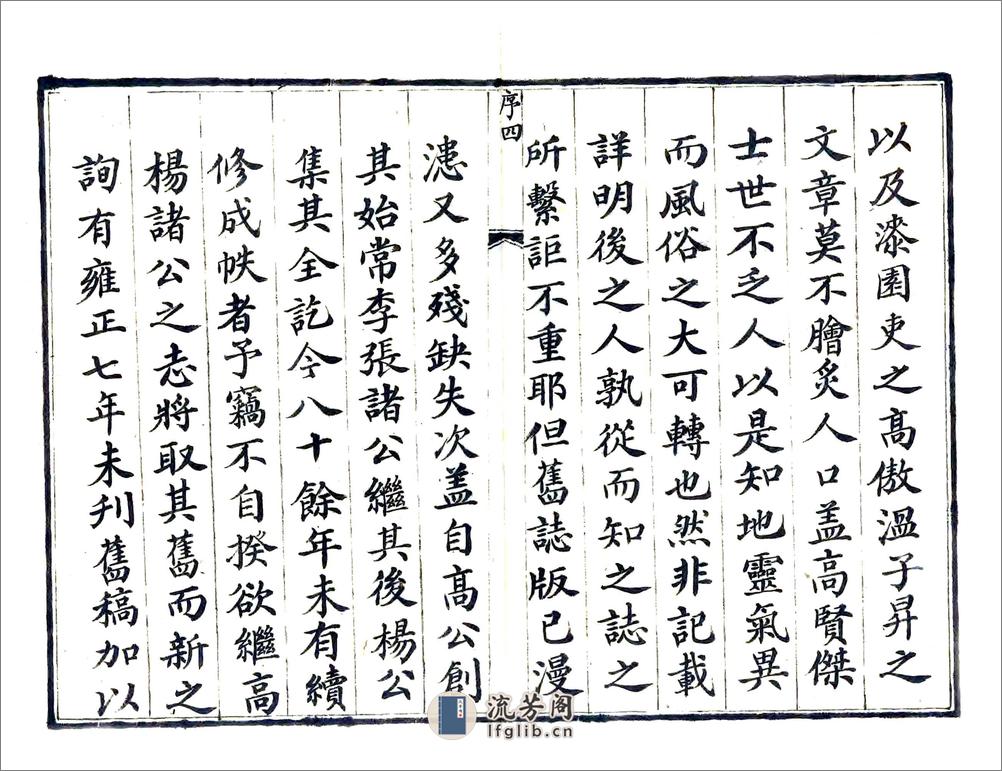 以及漆園吏之髙傲溫子昇之
文章莫不膾炙人口盖高賢傑
士世不乏人以是知地靈氣異
而風俗之大可轉也然非記載
詳明後之人孰從而知之誌之
所繫詎不重耶但舊誌版已漫
序四
漶又多殘缺失次盖自髙公創
其始常李張諸公繼其後楊公
集其全訖今八十餘年未有續
修成帙者予竊不自揆欲繼高
楊諸公之志將取其舊而新之
詢有雍正七年未刋舊稿加以
流芳阁
lfglib.cn